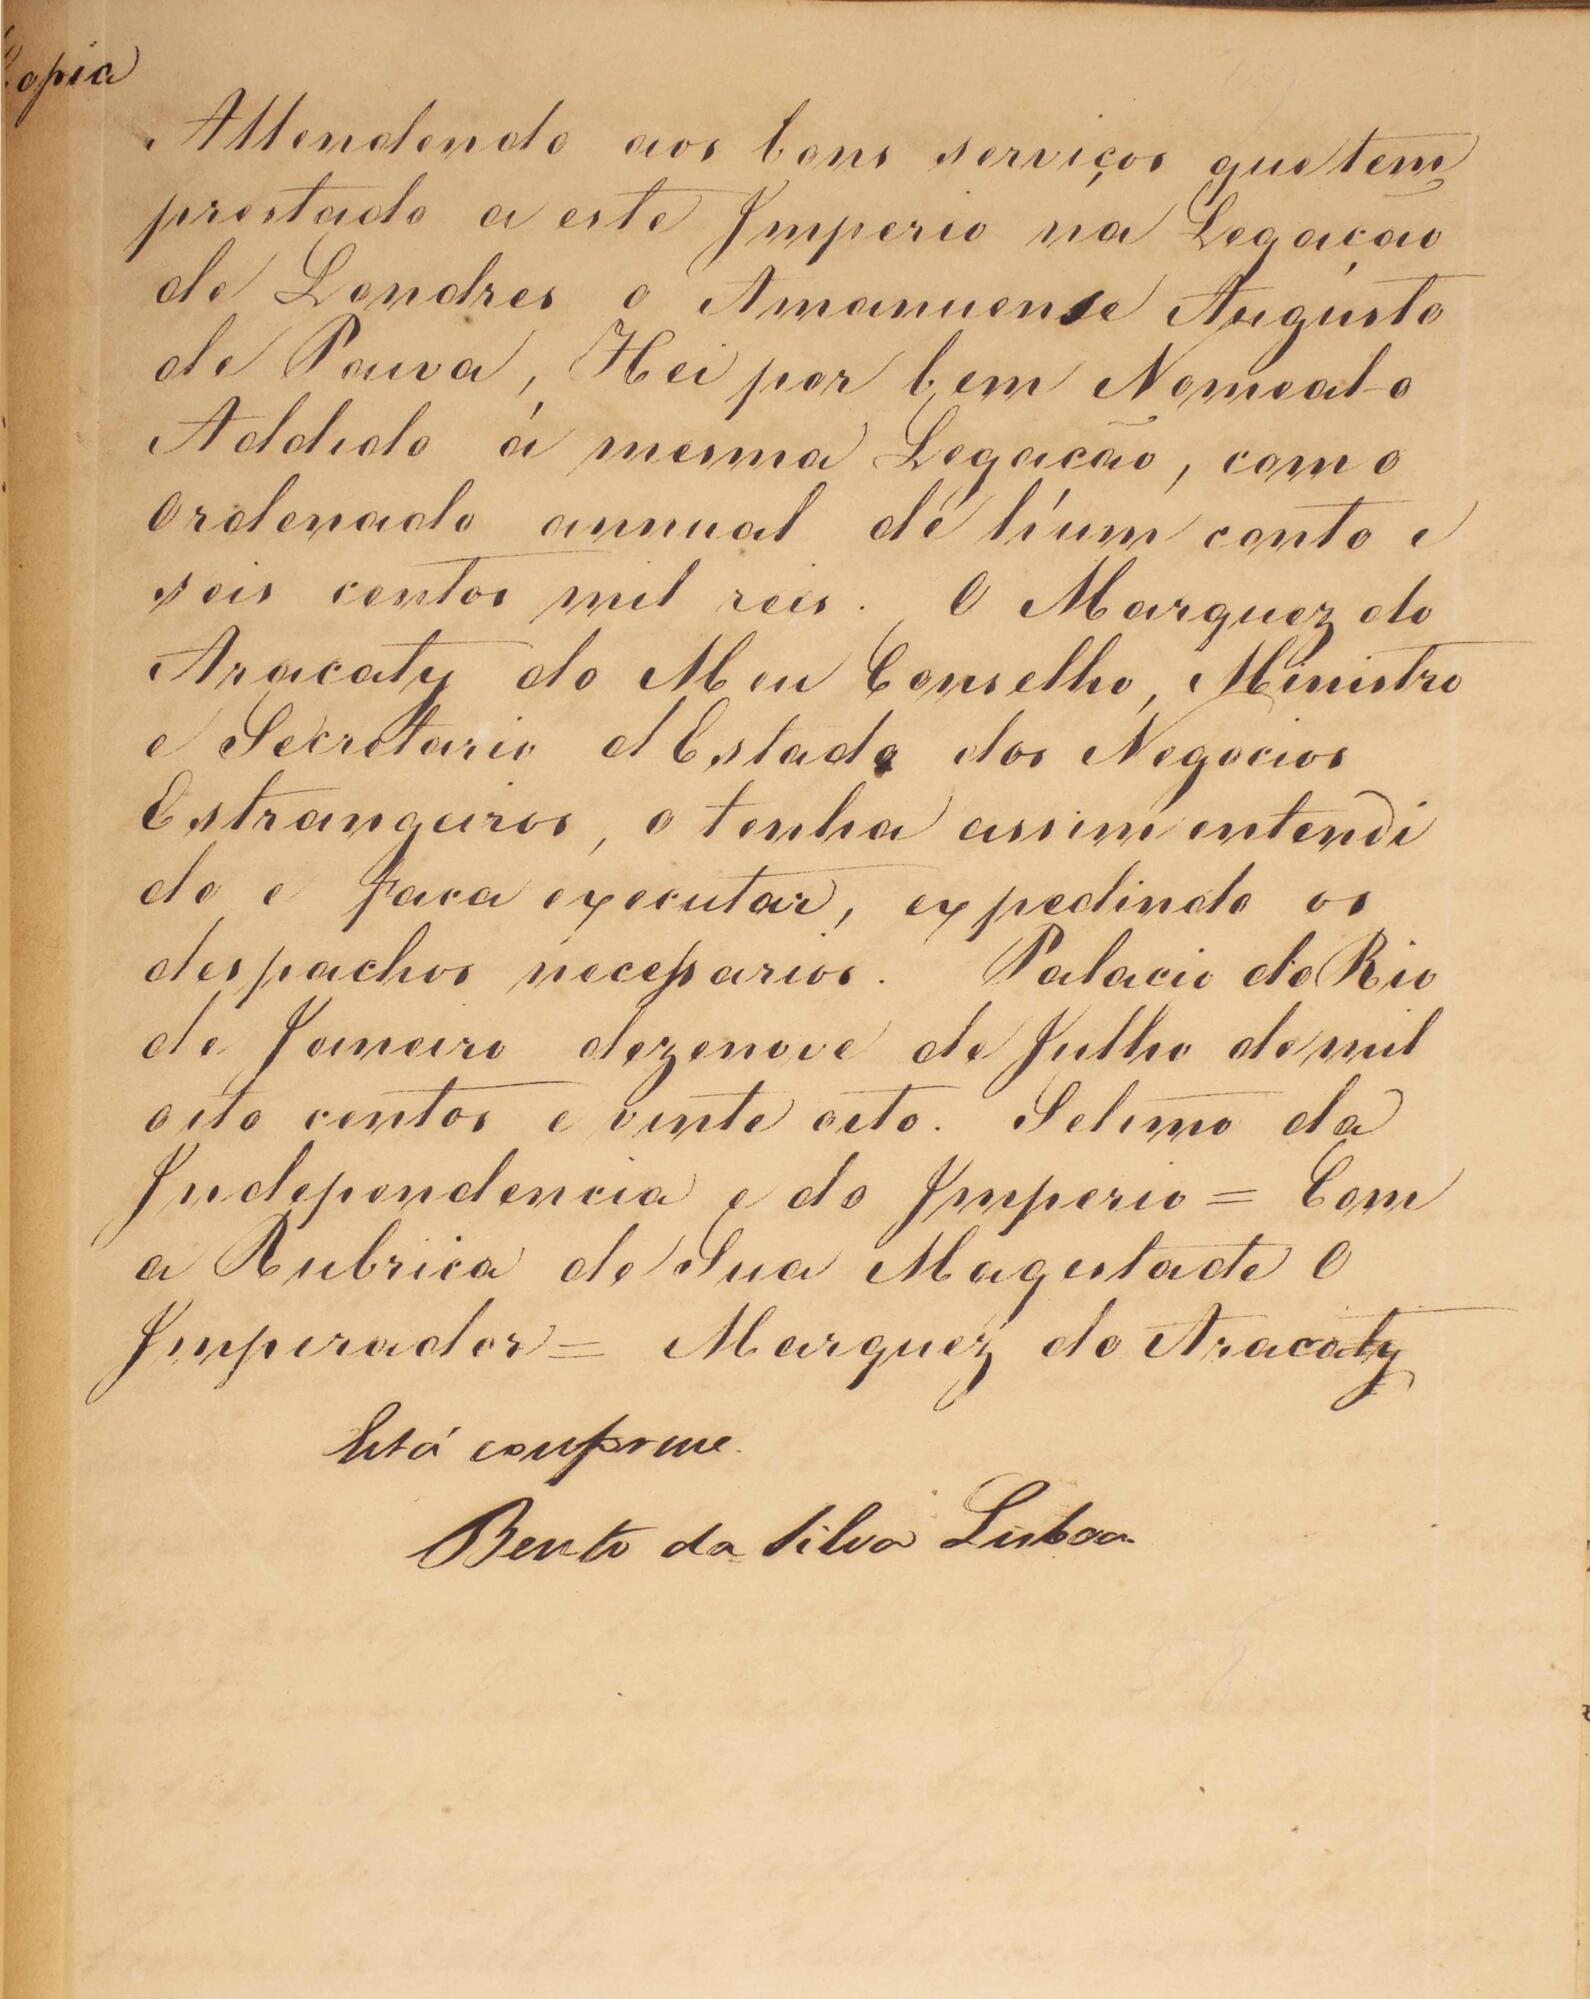 Copia
Attendendo aos bons serviços que tem
prestado a este Imperio na Legação
de Londres o Amanuense Augusto
de Paiva, Hei por bem Nomeal-o
Addido á mesma Legacão, com o
Ordenado annual de hum conto e
seis centos mil reis. O Marquez do
Aracaty do Meu Conselho, Ministro
e Secretario d'Estado dos Negocios
Estrangeiros, o tenha assim entendi
do e faca executar, expedindo os
despachos necessarios. Palacio do Rio
de Janeiro dezenove de Julho de mil
oito centos e vinte oito. Setimo da
Independencia e do Imperio = Com
a Rubrica de Sua Magestade O
Imperador = Marquez do Aracaty
Está conforme.
Bento da Silva Lisboa